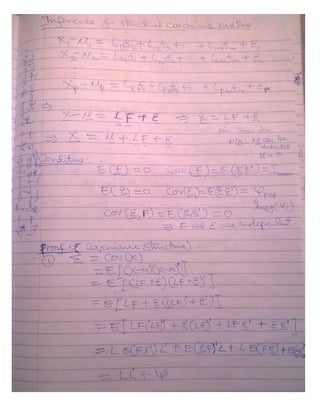 Inference for structured covariance matrix
X₁-M₁ = l₁₁F₁ + l₁₂F₂ + ... + l₁ₘFₘ + ε₁
X₂-M₂ = l₂₁F₁ + l₂₂F₂ + ... + l₂ₘFₘ + ε₂
⋮
Xp-Mp = lp₁F₁ + lp₂F₂ + ... + lpₘFₘ + εp
⇒
X-M = LF + ε ⇒ X = LF + ε
⇒ X = M + LF + ε
NB: M can be
Condition:
E(F) = 0 Cov(F) = E(FF') = I
E(ε) = 0 Cov(ε) = E(εε') = Ψ
Cov(ε,F) = E(εF') = 0
⇒ F and ε are independent
Proofs (Covariance structure)
① Σ = Cov(X)
= E[(X-M)(X-M)']
= E[(LF+ε)(LF+ε)']
= E[(LF+ε)((LF)'+ε')]
= E[LF(LF)' + ε(LF)' + LFε' + εε']
= L E(FF')L' + E(εF')L' + L E(Fε') + E(εε')
= LL' + Ψ